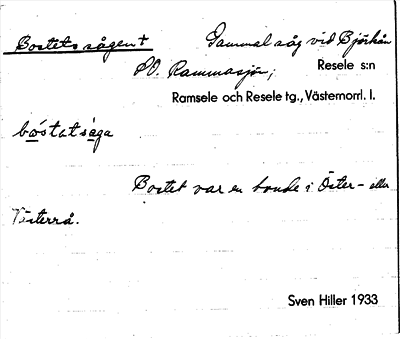 Bostets sågen † Gammal såg vid Björkån
SO. Rammasjön; Resele s:n
Ramsele och Resele tg., Västernorrl. l.
bo̱statså̱ga
Bostet var en bonde i Öster- eller
Västerrå.
Sven Hiller 1933